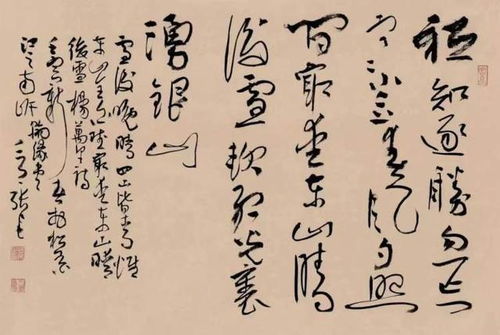 祗知逐勝忽忘
寒小立春風夕照
間最愛東山晴
後雪軟紅光裏
湧銀山
雪後晚晴四山皆青惟
東山全白賦最愛東山晴
後雪楊萬里詩